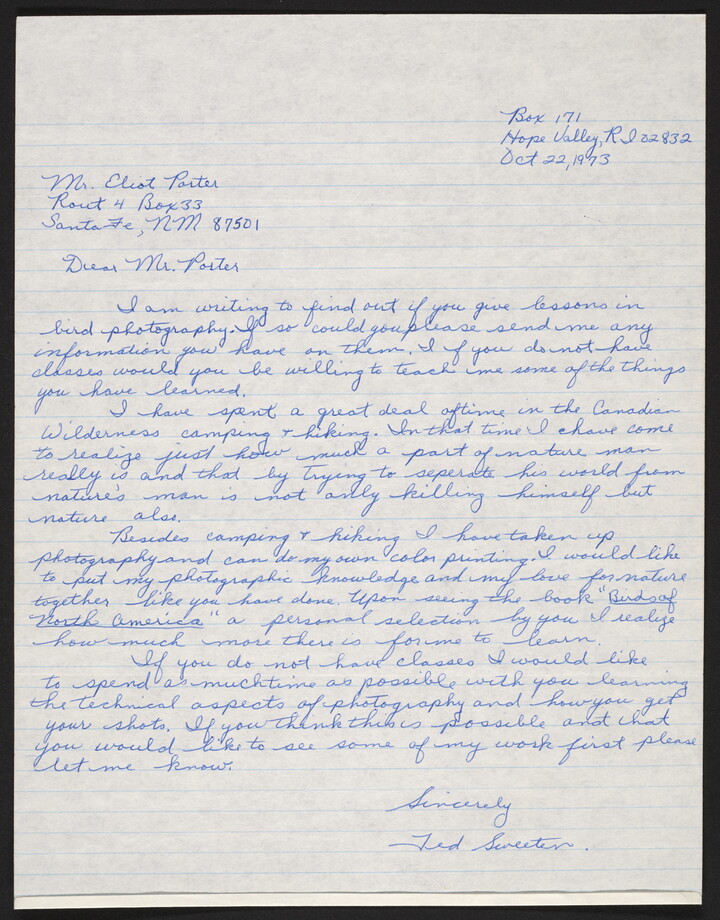 Box 171
Hope Valley, R I 02832
Oct 22, 1973
Mr. Eliot Porter
Rout 4 Box 33
Santa Fe, NM 87501
Dear Mr. Porter
I am writing to find out if you give lessons in
bird photography. If so could you please send me any
information you have on them. I if you do not have
classes would you be willing to teach me some of the things
you have learned.
I have spent a great deal of time in the Canadian
Wilderness camping + hiking. In that time I have come
to realize just how much a part of nature man
really is and that by trying to seperate his world from
nature's man is not only killing himself but
nature also.
Besides camping + hiking I have taken up
photography and can do my own color printing. I would like
to put my photographic knowledge and my love for nature
together like you have done. Upon seeing the book "Birds of
North America" a personal selection by you I realize
how much more there is for me to learn.
If you do not have classes I would like
to spend as much time as possible with you learning
the technical aspects of photography and how you get
your shots. If you think this is possible and that
you would like to see some of my work first please
let me know.
Sincerely
Ted Sweeten.